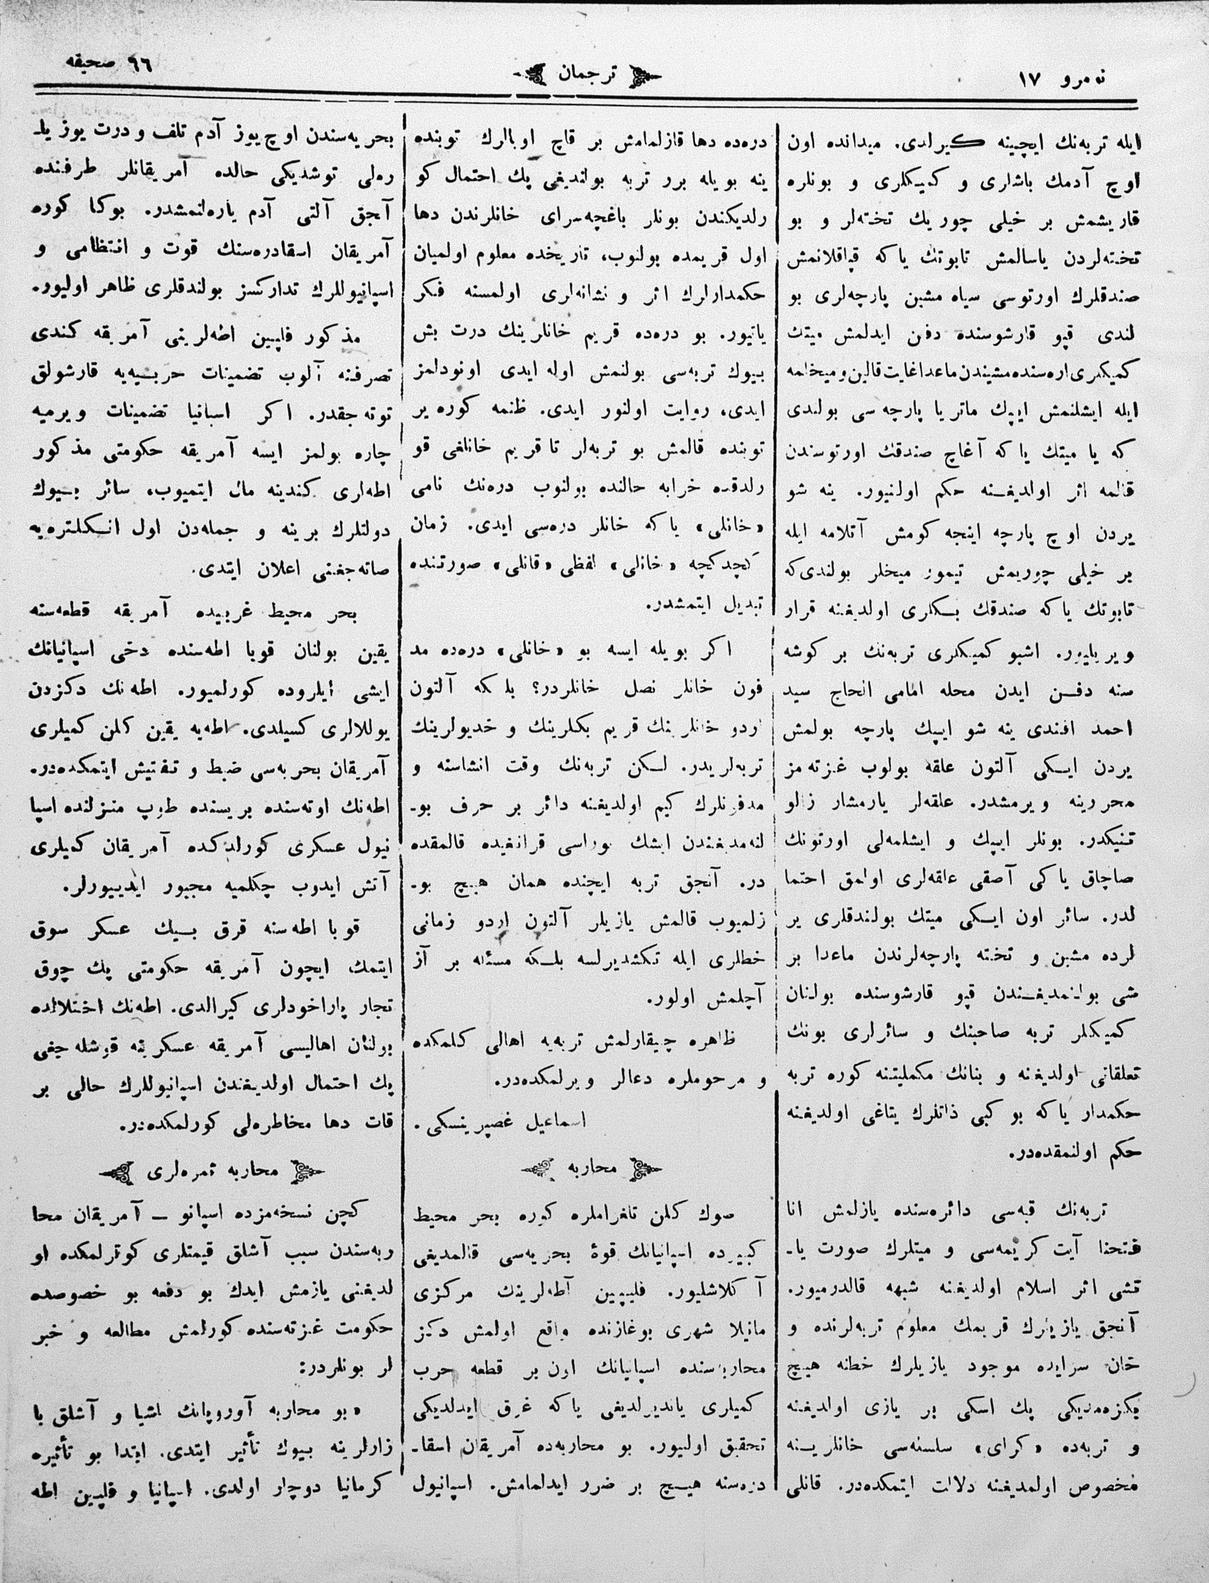 نومرو ١٧
ترجمان
٦٦ صحیفه
ایله تربه‌نك ایچینه كیرلدی. میدانده اون
اوچ آدمك باشلری و كمیكلری و بونلره
قاریشمش بر خیلی چوریك تخته‌لر و بو
تخته‌لردن یاسالمش تابوتك یاكه قپاقلانمش
صندقلرك اورتوسی سیاه مشین پارچه‌لری بو
لندی قپو قارشوسنده دفن ایدلمش میتك
كمیكلری اره‌سنده مشیندن ماعدا غایت قالین و میخلمه
ایله ایشلنمش ایپك ماتریا پارچه‌سی بولندی
كه یا میتك یاكه آغاچ صندقك اورتوسندن
قالمه اثر اولدیغنه حكم اولنیور. ینه شو
یردن اوچ پارچه اینجه كومش آقلامه ایله
بر خیلی چوریمش تیمور میخلر بولندی‌كه
تابوتك یاكه صندقك بكلری اولدیغنه قرار
ویریلیور. اشبو كمیكلری تربه‌نك بر كوشه
سنه دفن ایدن محله امامی الحاج سید
احمد افندی ینه شو ایپك پارچه بولمش
یردن ایكی آلتون علقه بولوب غزته‌مز
محررینه ویرمشدر. علقه‌لر یارمشار زلو
تنیكدر. بونلر ایپك و ایشلمه‌لی اورتونك
صاچاق یاكی آصقی علقه‌لری اولمق احتما
لدر. سائر اون ایكی میتك بولندقلری یر
لرده مشین و تخته پارچه‌لرندن ماعدا بر
شی بولنمدیغندن قپو قارشوسنده بولنان
كمیكلر تربه صاحبنك و سائرلری بونك
تعلقاتی اولدیغنه و بنانك مكملیتنه كوره تربه
حكمدار یاكه بو كبی ذاتلرك یتاغی اولدیغنه
حكم اولنمقده‌در.
تربه‌نك قبه‌سی دائره‌سنده یازلمش انا
فتحنا آیت كریمه‌سی و میتلرك صورت یا-
تشی اثر اسلام اولدیغنه شبهه قالدرمیور.
آنجق یازیلرك قریمك معلوم تربه‌لرنده و
خان سراینده موجود یازیلرك خطنه هیچ
بكزه‌مدیكی پك اسكی بر یازی اولدیغنه
و تربه‌ده «كرای» سلسله‌سی خانلرینه
مخصوص اولمدیغنه دلالت ایتمكده‌در. قانلی
دره‌ده دها قازلمامش بر قاچ اوبالرك توبنده
ینه بویله برر تربه بولندیغی پك احتمال كو
رلدیكندن بونلر باغچه‌سرای خانلرندن دها
اول قریمده بولنوب، تاریخده معلوم اولمیان
حكمدارلرك اثر و نشانه‌لری اولمسنه فكر
یاتیور. بو دره‌ده قریم خانلرینك درت بش
بیوك تربه‌سی بولنمش اوله ایدی اونودلمز
ایدی، روایت اولنور ایدی. ظنمه كوره یر
توبنده قالمش بو تربه‌لر تا قریم خانلغی قو
رلدقده خرابه حالنده بولنوب دره‌نك نامی
«خانلی» یاكه خانلر دره‌سی ایدی. زمان
كچدكچه «خانلی» لفظی «قانلی» صورتنده
تبدیل ایتمشدر.
اكر بویله ایسه بو «خانلی» دره‌ده مد
فون خانلر نصل خانلردر؟ بلكه آلتون
اردو خانلرینك قریم بكلرینك و خدیولرینك
تربه‌لریدر. لكن تربه‌نك وقت انشاسنه و
مدفونلرك كیم اولدیغنه دائر بر حرف بو-
لنه‌مدیغندن ایشك بوراسی قرانغیده قالمقده
در. آنجق تربه ایچنده همان هیچ بو-
زلمیوب قالمش یازیلر آلتون اردو زمانی
خطلری ایله تكشدیرلسه بلكه مسئله بر آز
آچلمش اولور.
ظاهره چیقارلمش تربه‌یه اهالی كلمكده
و مرحوملره دعالر ویرلمكده‌در.
اسماعیل غصپرینسكی.
محاربه
صوك كلن تلغراملره كوره بحر محیط
كبیرده اسپانیانك قوۀ بحریه‌سی قالمدیغی
آكلاشلیور. فلیپین آطه‌لرینك مركزی
مانیلا شهری بوغازنده واقع اولمش دكز
محاربه‌سنده اسپانیانك اون بر قطعه حرب
كمیلری یاندیرلدیغی یاكه غرق ایدلدیكی
تحقیق اولیور. بو محاربه‌ده آمریقان اسقا-
دره‌سنه هیچ بر ضرر ایدلمامش. اسپانیول
بحریه‌سندن اوچ‌یوز آدم تلف و درت یوز یا-
ره‌لی توشدیكی حالده آمریقانلر طرفنده
آنجق آلتی آدم یاره‌لنمشدر. بوكا كوره
آمریقان اسقادره‌سنك قوت و انتظامی و
اسپانیوللرك تداركسز بولندقلری ظاهر اولیور.
مذكور فلپین اطه‌لرینی آمریقه كندی
تصرفنه آلوب تضمینات حربیه‌یه قارشولق
توته‌جقدر. اكر اسبانیا تضمینات ویرمیه
چاره بولمز ایسه آمریقه حكومتی مذكور
اطه‌لری كندینه مال ایتمیوب، سائر بیوك
دولتلرك برینه و جمله‌دن اول انكلتره‌یه
صاته‌جغنی اعلان ایتدی.
بحر محیط غربیده آمریقه قطعه‌سنه
یقین بولنان قوبا اطه‌سنده دخی اسپانیانك
ایشی ایلروده كورلمیور. اطه‌نك دكزدن
یوللالری كسیلدی. اطه‌یه یقین كلن كمیلری
آمریقان بحریه‌سی ضبط و تفتیش ایتمكده‌در.
اطه‌نك اوته‌سنده بریسنده طوپ منزلنده اسپا
نیول عسكری كورلدكده آمریقان كمیلری
آتش ایدوب چكلمیه مجبور ایدییورلر.
قوبا اطه‌سنه قرق بیك عسكر سوق
ایتمك ایچون آمریقه حكومتی پك چوق
تجار پاراخودلری كیرالدی. اطه‌نك اختلالده
بولنان اهالیسی آمریقه عسكرینه قوشله‌جغی
پك احتمال اولدیغندن اسپانیوللرك حالی بر
قات دها مخاطره‌لی كورلمكده‌در.
محاربه ثمره‌لری
كچن نسخه‌مزده اسپانو – آمریقان محا
ربه‌سندن سبب آشلق قیمتلری كوترلمكده او
لدیغنی یازمش ایدك بو دفعه بو خصوصده
حكومت غزته‌سنده كورلمش مطالعه و خبر
لر بونلردر:
«بو محاربه آوروپانك اشیا و آشلق با
زارلرینه بیوك تأثیر ایتدی. ابتدا بو تأثیره
كرمانیا دوچار اولدی. اسپانیا و فلپین اطه